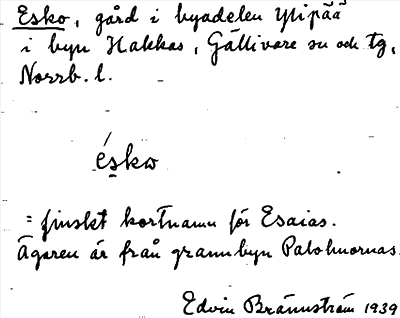 Esko, gård i byadelen Ylipää
i byn Hakkas, Gällivare sn och tg,
Norrb. l.
éskω
= finskt kortnamn för Esaias.
Ägaren är från grannbyn Palohuornas.
Edvin Brännström 1939